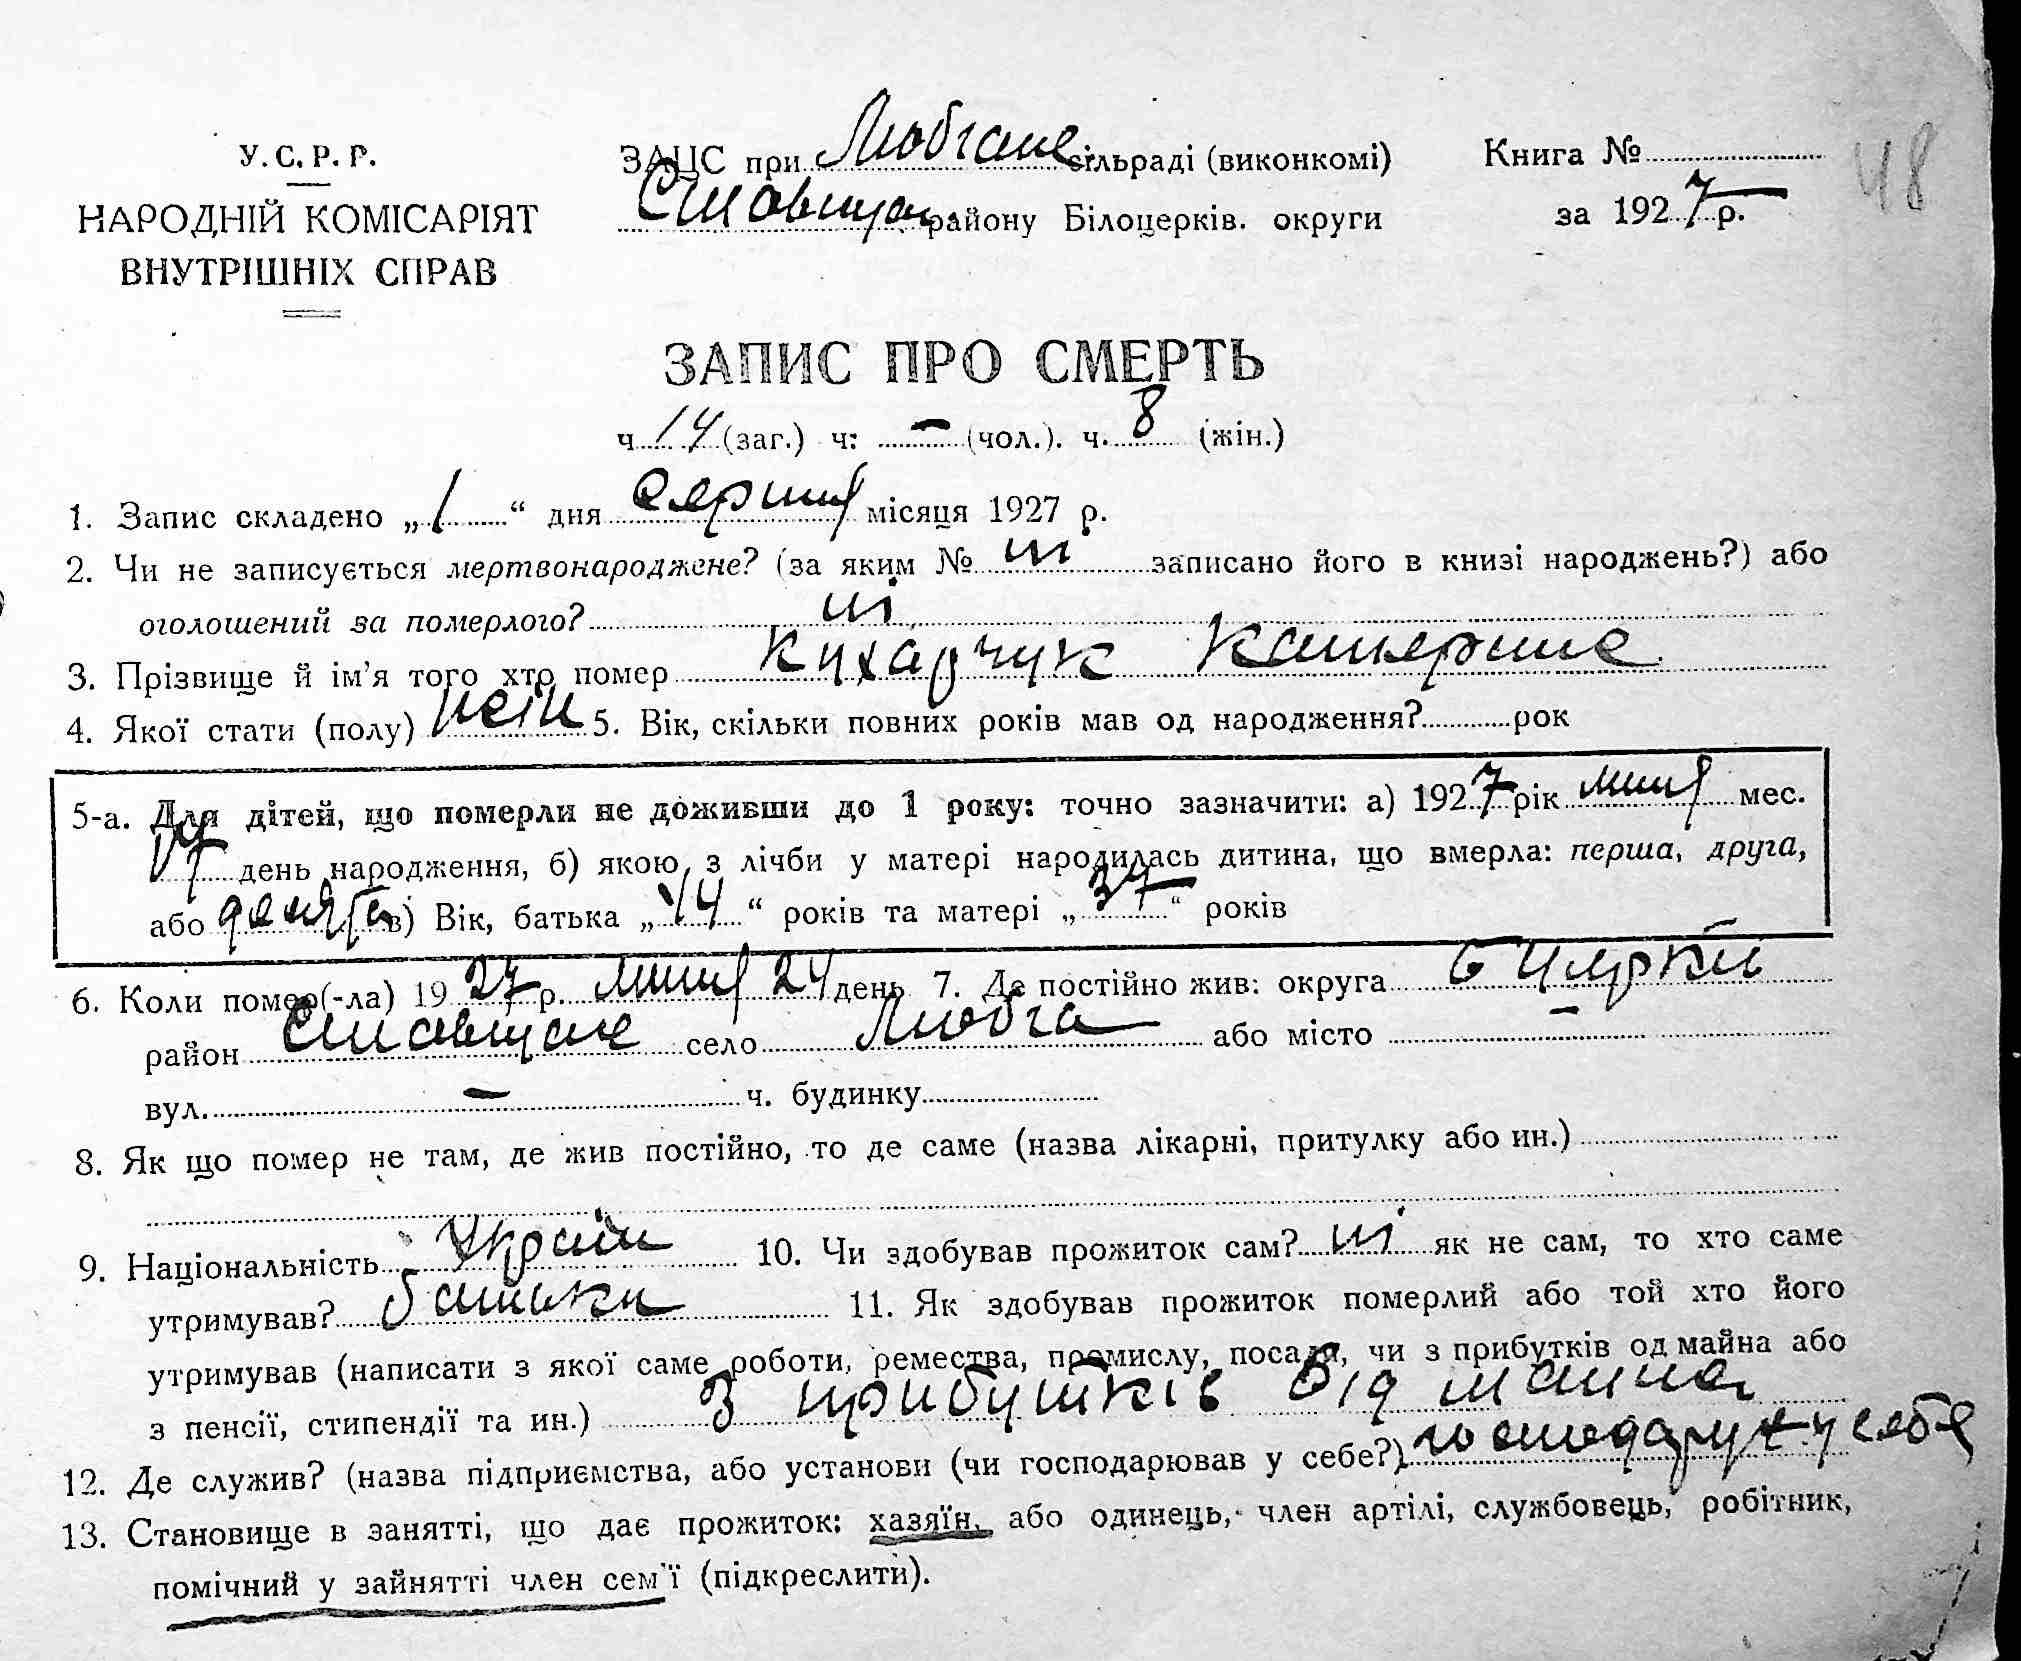 48
У. С. Р. Р.
НАРОДНІЙ КОМІСАРІЯТ
ВНУТРІШНІХ СПРАВ
ЗАЦС при Любчане сільраді (виконкомі)
Ставищан. району Білоцерків. округи
Книга №
за 1927 р.
ЗАПИС ПРО СМЕРТЬ
ч 14 (заг.) ч: – (чол.). ч. 8 (жін.)
1. Запис складено „1“ дня серпня місяця 1927 р.
2. Чи не записується мертвонароджене? (за яким № ні записано його в книзі народжень?) або
оголошений за померлого? ні
3. Прізвище й ім’я того хто помер Кухарчук Катерина
4. Якої стати (полу) жін 5. Вік, скільки повних років мав од народження? рок
5-а. Для дітей, що померли не доживши до 1 року: точно зазначити: а) 1927 рік липня мес.
17 день народження, б) якою з лічби у матері народилась дитина, що вмерла: перша, друга,
або девята в) Вік, батька „44“ років та матері „37“ років
6. Коли помер(-ла) 1927 р. липня 24 день 7. Де постійно жив: округа Б Церкви
район Ставищане село Любча або місто –
вул. – ч. будинку
8. Як що помер не там, де жив постійно, то де саме (назва лікарні, притулку або ин.)
9. Національність Україн 10. Чи здобував прожиток сам? ні як не сам, то хто саме
утримував? батьки 11. Як здобував прожиток померлий або той хто його
утримував (написати з якої саме роботи, ремества, промислу, посади, чи з прибутків од майна або
з пенсії, стипендії та ин.) З прибутків від майна
12. Де служив? (назва підприємства, або установи (чи господарював у себе?) господарує у себе
13. Становище в занятті, що дає прожиток: хазяїн, або одинець, член артілі, службовець, робітник,
помічний у зайнятті член сем'ї (підкреслити).